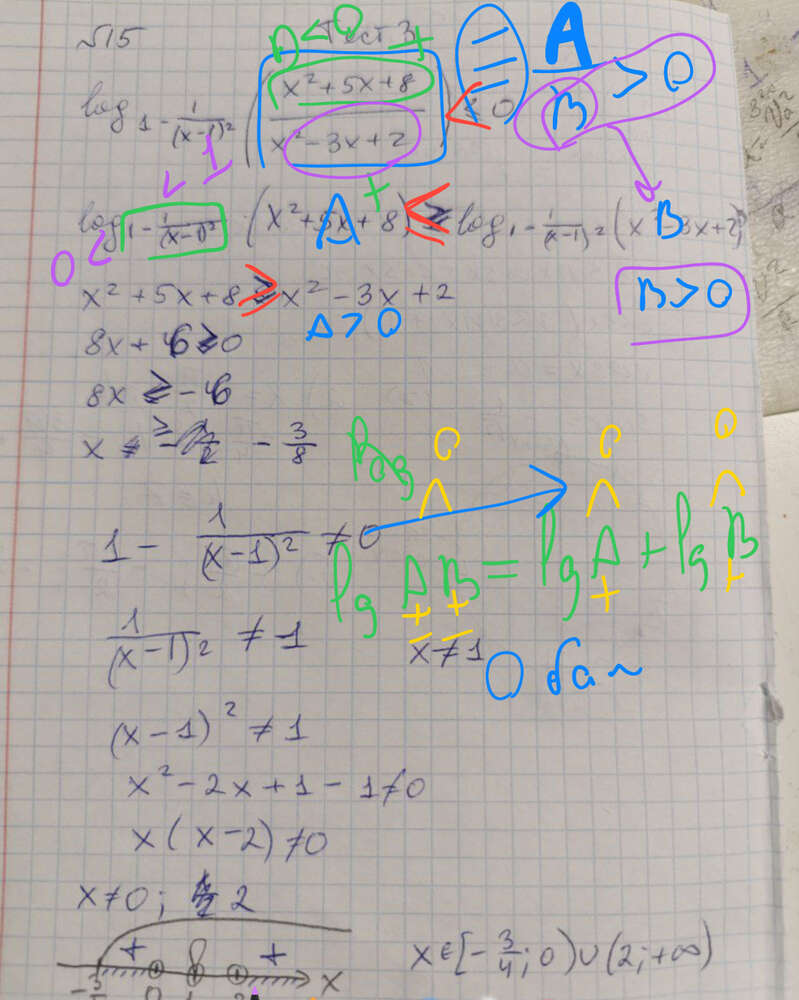 №15 Тест 3
< 0 +
log 1 - 1/(x-1)² ( x² + 5x + 8 / x² - 3x + 2 ) ≤ 0
A / B > 0
log 1 - 1/(x-1)² (x² + 5x + 8) ≥ log 1 - 1/(x-1)² (x² - 3x + 2)
A + B
0 <
x² + 5x + 8 ≥ x² - 3x + 2
A > 0
B > 0
8x + 6 ≥ 0
8x ≥ -6
x ≥ - 3/8
1 - 1/(x-1)² ≠ 0
lg AB = lg A + lg B
+ + + +
0 0 0
1/(x-1)² ≠ 1
x ≠ 1
0 бал
(x-1)² ≠ 1
x² - 2x + 1 - 1 ≠ 0
x(x-2) ≠ 0
x ≠ 0; 2
+ + x
x ∈ [-3/4; 0) ∪ (2; +∞)